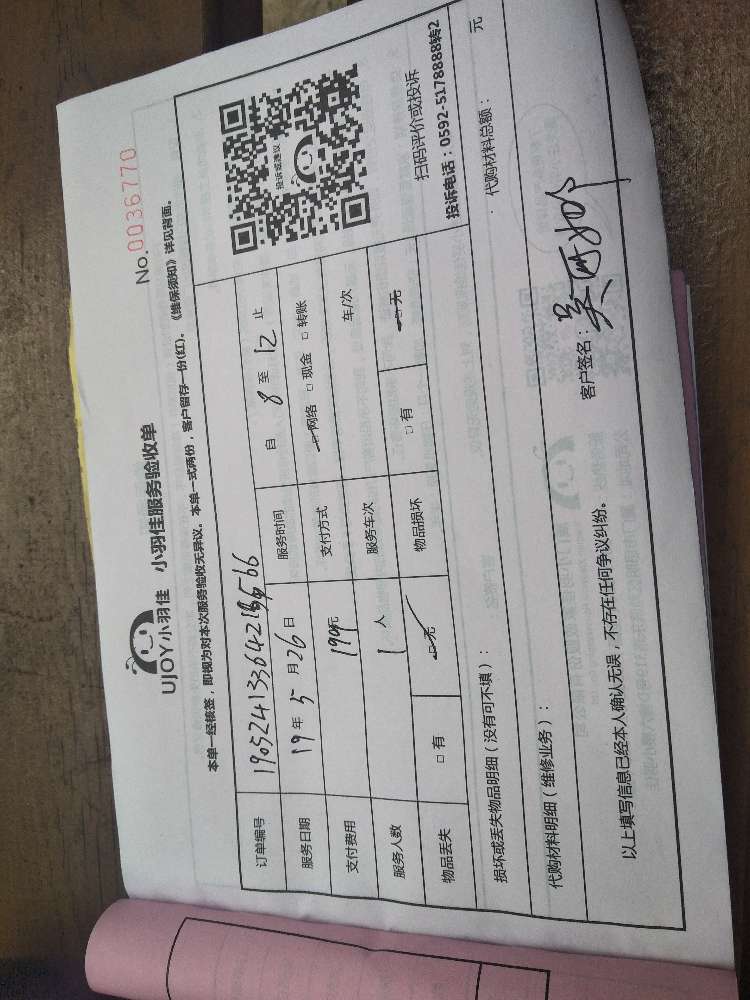 No.0036770
UJOY小羽佳 小羽佳服务验收单
本单一经核签，即视为对本次服务验收无异议。本单一式两份，客户留存一份(红)。《维保须知》详见背面。
订单编号
服务日期 19年5月26日 服务时间 自 8 至 12 止
支付费用 199元 支付方式 □网络 □现金 □转账
服务人数 1 人 服务车次 车/次
物品丢失 □有 □无 物品损坏 □有 □无
投诉或建议
扫码评价或投诉
投诉电话：0592-5178888转2
损坏或丢失物品明细（没有可不填）：
代购材料明细（维修业务）： 代购材料总额： 元
以上填写信息已经本人确认无误，不存在任何争议纠纷。
客户签名：